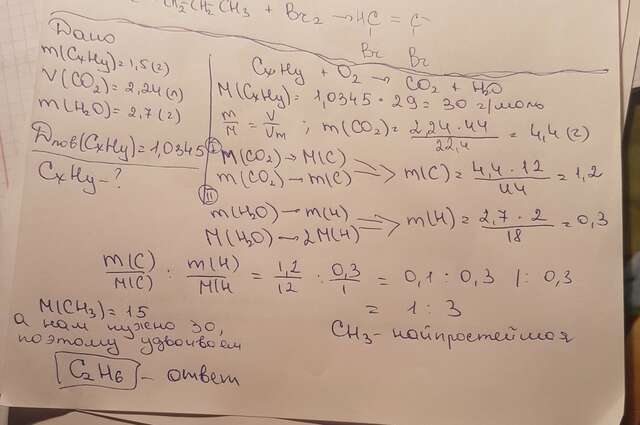 CH2CH2CH3 + Br2 → HC = C
Br Br
Дано
m(CxHy)=1,5(г)
V(CO2)=2,24(л)
m(H2O)=2,7(г)
Dпов(CxHy)=1,0345
CxHy-?
CxHy + O2 → CO2 + H2O
M(CxHy)=1,0345·29=30 г/моль
m/M = V/Vm ; m(CO2)= 2,24·44/22,4 = 4,4(г)
I M(CO2)→M(C)
m(CO2)→m(C) => m(C)= 4,4·12/44 = 1,2
II
m(H2O)→m(H)
M(H2O)→2M(H) => m(H)= 2,7·2/18 = 0,3
m(C)/M(C) : m(H)/M(H = 1,2/12 : 0,3/1 = 0,1 : 0,3 |: 0,3
= 1 : 3
M(CH3)=15
а нам нужно 30,
поэтому удваиваем
CH3-найпростейшая
C2H6 - ответ